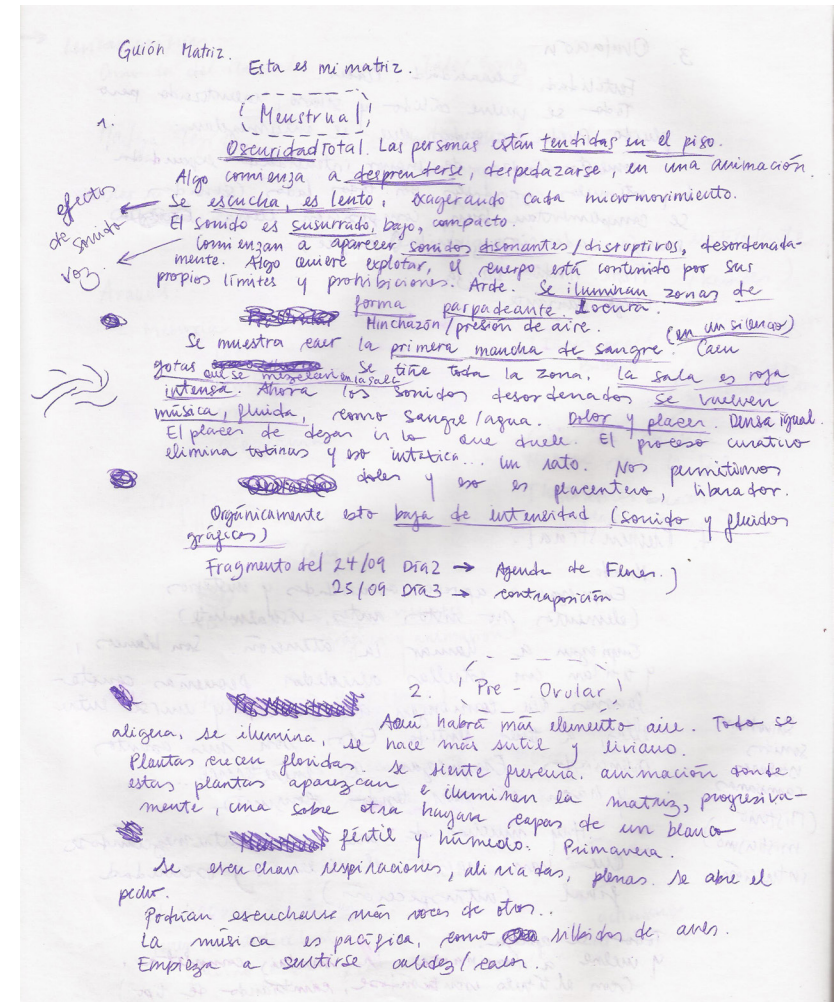 Guión Matriz.
Esta es mi matriz.
1. Menstrual
Oscuridad Total. Las personas están tendidas en el piso.
Algo comienza a desprenderse, despedazarse en una animación.
Se escucha, es lento, exagerando cada micromovimiento.
efectos de sonido
voz.
El sonido es susurrado, bajo, compacto.
Comienzan a aparecer sonidos disonantes/disruptivos, desordenada-
mente. Algo quiere explotar, el cuerpo está contenido por sus
propios límites y prohibiciones. Arde. Se iluminan zonas de
forma parpadeante. Locura.
Hinchazón/presión de aire.
(en un silencio)
Se muestra caer la primera mancha de sangre. Caen
gotas que se mezclan en la sala Se tiñe toda la zona. La sala es roja
intensa. Ahora los sonidos desordenados se vuelven
música, fluida, como sangre/agua. Dolor y placer. Densa igual.
El placer de dejar ir lo que duele. El proceso curativo
elimina y eso ... un rato. Nos permitimos
doler y eso es placentero, liberador.
Orgánicamente esto baja de intensidad (sonido y fluidos
gráficos)
Fragmento del 24/09 Día 2 → Agenda de
25/09 Día 3 → contraposición
2. Pre - Ovular
Aquí habrá más elemento aire. Todo se
aligera, se ilumina, se hace más sutil y liviano.
Plantas crecen floridas. Se siente frescura. animación donde
estas plantas aparezcan e iluminen la matriz, progresiva-
mente, una sobre otra hagan capas de un blanco
fértil y húmedo. Primavera.
Se escuchan respiraciones, aliviadas, plenas. Se abre el
pecho.
Podrían escucharse más voces de otros..
La música es pacífica, como silbidos de aves.
Empieza a sentirse calidez/calor.